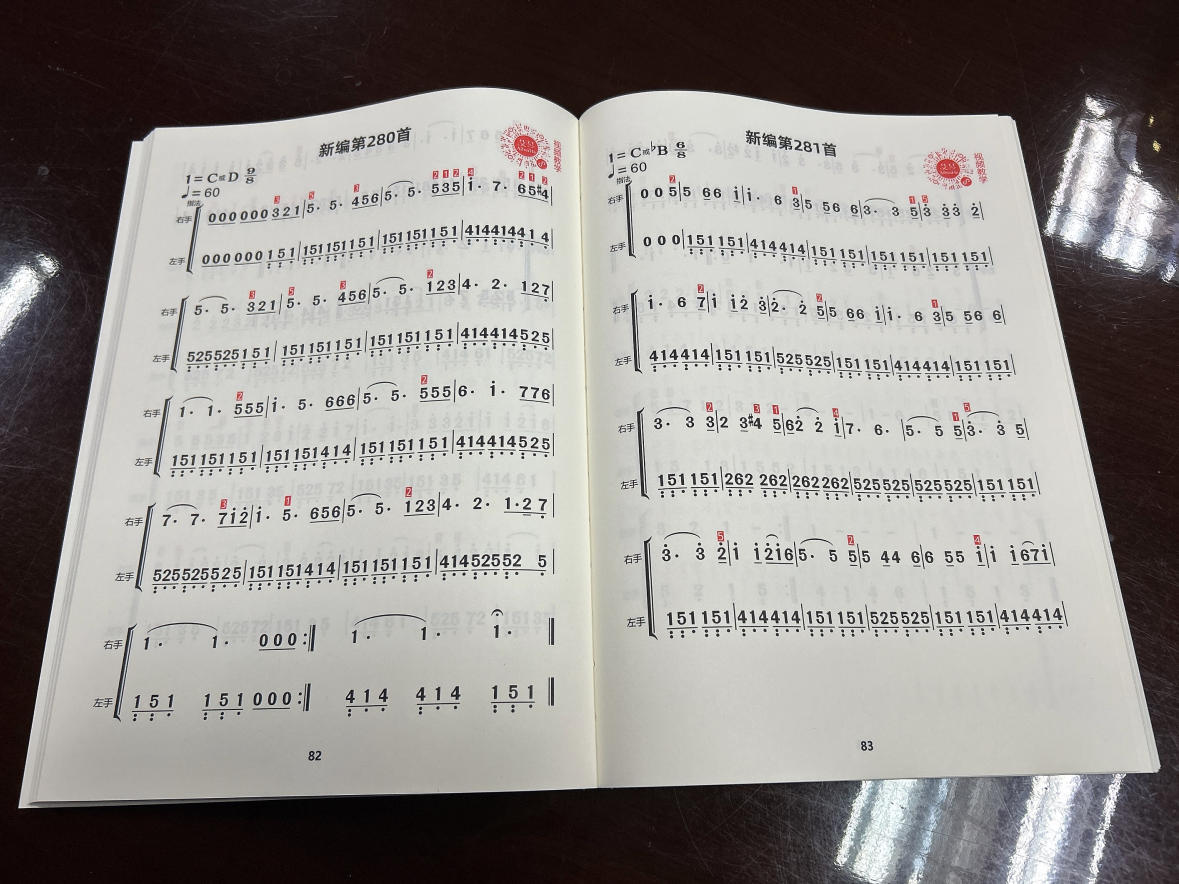 新编第280首
视频教学
1=C或D 9/8
♩=60
指法 3 5 3 2 1 2 4 1 1 2
右手 000000 321|5· 5· 456|5· 5· 535|i· 7· 65#4
左手 000000151|151151151|151151151|414414414
3 5 3 2
右手 5· 5· 321|5· 5· 456|5· 5· 123|4· 2· 127
左手 525525151|151151151|151151151|414414525
2 2
右手 1· 1· 555|i· 5· 666|5· 5· 555|6· i· 776
左手 151151151|151151414|151151151|414414525
3 1 2
右手 7· 7· 7i2|i· 5· 656|5· 5· 123|4· 2· 1·27
左手 525525525|151151414|151151151|41452552 5|
右手 1· 1· 000:‖ 1· 1· 1·‖
左手 151 151 000:‖ 414 414 151‖
82
新编第281首
视频教学
1=C或♭B 6/8
♩=60
指法 2 1 1 5
右手 0 0 5|5 66 i|i· 6 3|5 56 6|3· 3 5|3 33 2|
左手 0 0 0|151151|414414|151151|151151|151151|
2 2 1
右手 i· 6 7|i i2 3|2· 2 5|5 66 i|i· 6 3|5 56 6|
左手 414414|151151|525525|151151|414414|151151|
2 3 1 4 1 5
右手 3· 3 3|2 3#4 5|62 2 i|7· 6·|5· 5 5|3· 3 5|
左手 151151|262262|262262|525525|525525|151151|
5 2 4
右手 3· 3 2|i i2i6|5· 5 5|5 44 6|6 55 i|i i67i|
左手 151151|414414|151151|525525|151151|414414|
83